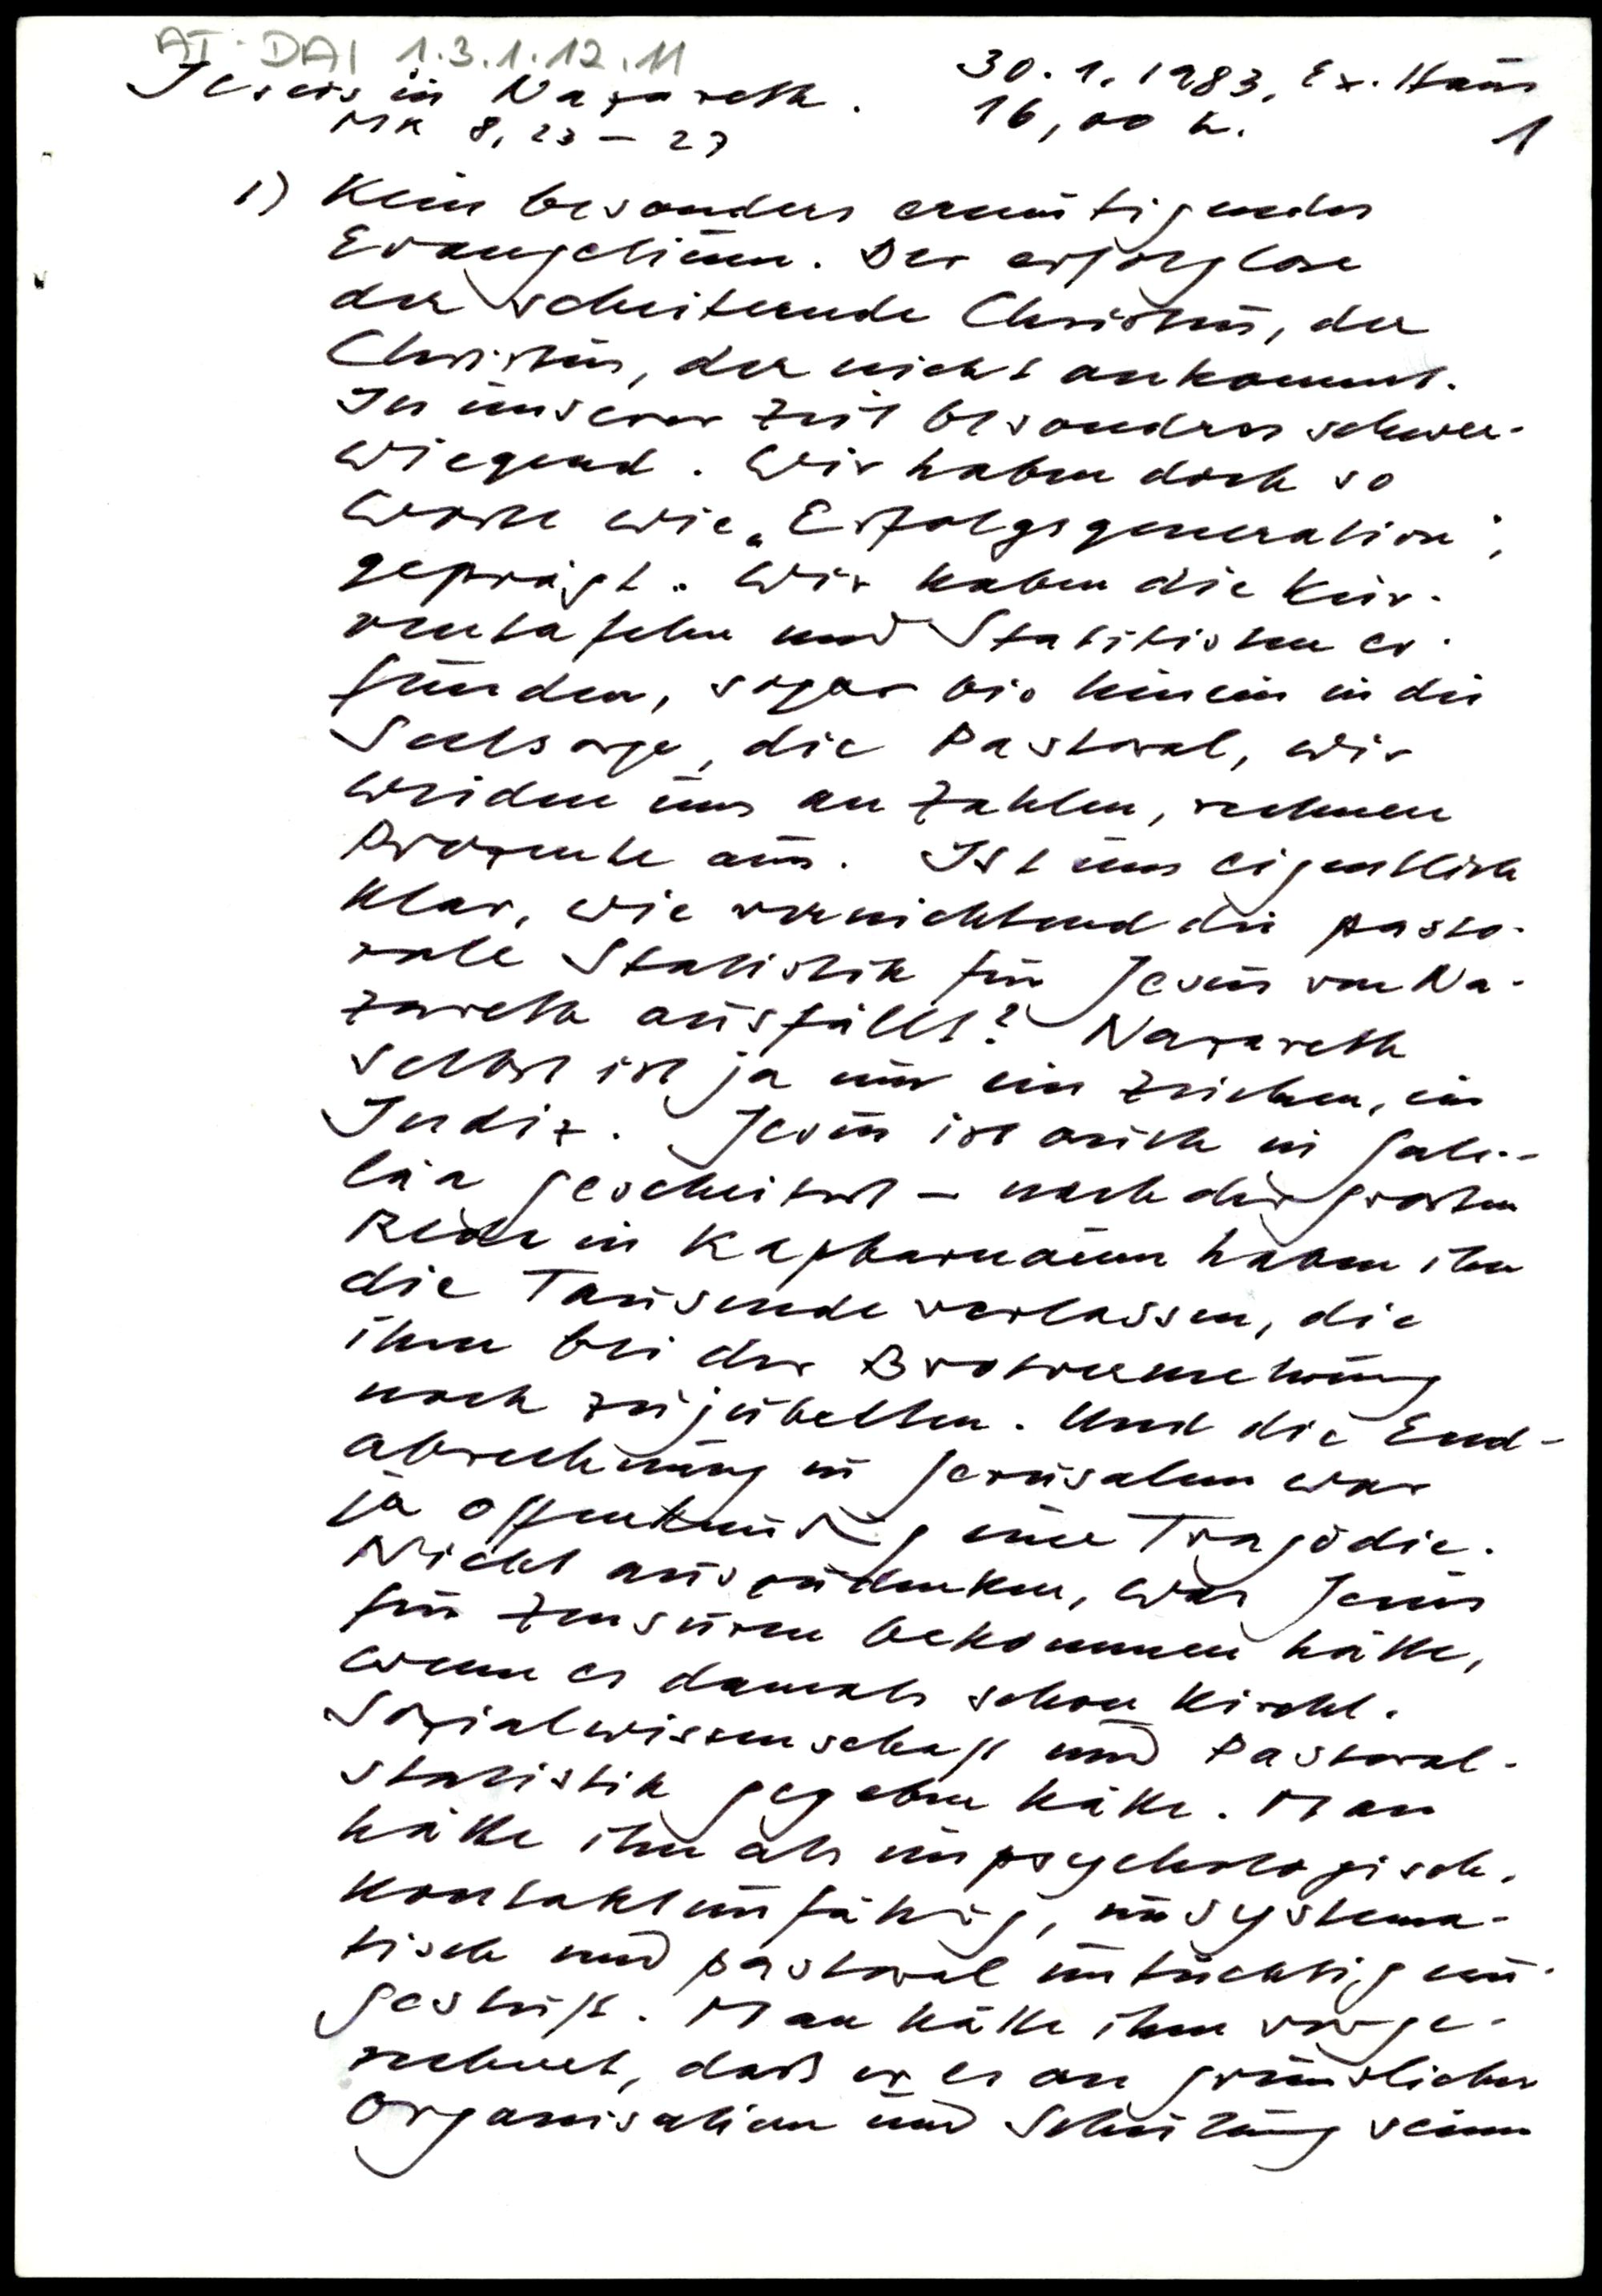 AT-DAI 1.3.1.12.11
Jesus in Nazareth.
30.1.1983, Ex. Haus
Mk 8, 23-27
16,00 h.
1
1) Kein besonders ermutigendes
Evangelium. Der erfolglose
der scheiternde Christus, der
Christus, der nicht ankommt.
In unserer Zeit besonders schwer-
wiegend. Wir haben doch so
Worte wie „Erfolgsgeneration“,
geprägt. Wir haben die Kur-
ventafeln und Statistiken er-
funden, sogar bis hinein in die
Seelsorge, die Pastoral, wir
weiden uns an Zahlen, rechnen
Prozente aus. Ist uns eigentlich
klar, wie vernichtend die pasto-
rale Statistik für Jesus von Na-
zareth ausfällt? Nazareth
selbst ist ja nur ein Zeichen, ein
Indiz. Jesus ist auch in Gali-
läa gescheitert – nach der grossen
Rede in Kapharnaum haben ihn
die Tausende verlassen, die
ihm bei der Brotvermehrung
noch zujubelten. Und die End-
abrechnung in Jerusalem war
ja offenkundig eine Tragödie.
Nicht auszudenken, was Jesus
für Zensuren bekommen hätte,
wenn es damals schon kirchl.
Sozialwissenschaft und Pastoral-
statistik gegeben hätte. Man
hätte ihn als unpsychologisch,
kontaktunfähig, unsystema-
tisch und pastoral untüchtig ein-
gestuft. Man hätte ihm vorge-
rechnet, daß er es an gründlicher
Organisation und Schulung seiner